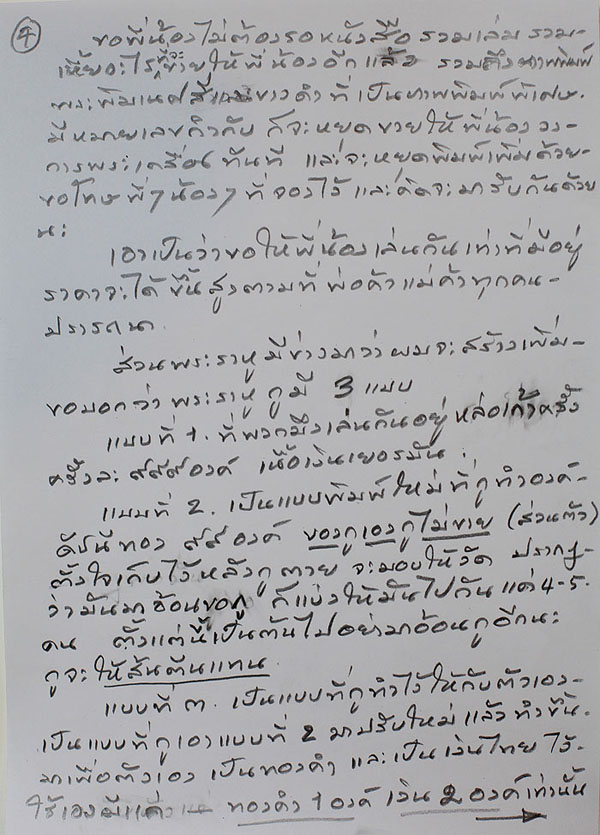 ๔
ขอพี่น้องไม่ต้องรอหนังสือ รวมเล่ม รวม-
เหี้ยอะไรที่จะขายให้พี่น้องอีกแล้ว รวมถึงภาพพิมพ์
พระพิฆเนศสี่ ขางดำที่เป็นภาพพิมพ์พิเศษ.
มีหมายเลขกำกับ ก็จะหยุดขายให้พี่น้องวง-
การพระเครื่องทันที และจะหยุดพิมพ์เพิ่มด้วย-
ขอโทษพี่ๆน้องๆ ที่จองไว้ และคิดจะมารับกันด้วย
นะ
เอาเป็นว่าขอให้พี่น้องเล่นกันเท่าที่มีอยู่
ราคาจะได้ขึ้นสูงตามที่พ่อค้าแม่ค้าทุกคน-
ปรารถนา
ส่วนพระราหูมีข่าวมาว่าผมจะสร้างเพิ่ม-
ขอบอกว่าพระราหูกูมี 3 แบบ
แบบที่ ๑. ที่พวกมึงเล่นกันอยู่ หล่อเก้าครั้ง
ครั้งละ ๙๙๙องค์ เนื้อเงินเยอรมัน.
แบบที่ 2. เป็นแบบพิมพ์ใหม่ที่กูทำองค์-
ดัชนีทอง ๙๙องค์ ของกูเองกูไม่ขาย (ส่วนตัว)
ตั้งใจเก็บไว้หลังกูตาย จะมอบให้วัด ปรากฏ-
ว่ามันมาอ้อนขอกู ก็แบ่งให้มันไปกันแค่ 4-5.
คน ตั้งแต่นี้เป็นต้นไปอย่ามาอ้อนกูอีกนะ
กูจะให้ส้นตีนแทน
แบบที่ ๓. เป็นแบบที่กูทำไว้ให้กับตัวเอง-
เป็นแบบที่กูเอาแบบที่ 2 มาปรับใหม่ แล้วทำขึ้น-
มาเพื่อตัวเอง เป็นทองคำ และเป็นเงินไทย ไว้-
ใช้เองมีแค่ — ทองคำ 1 องค์ เงิน 2 องค์เท่านั้น